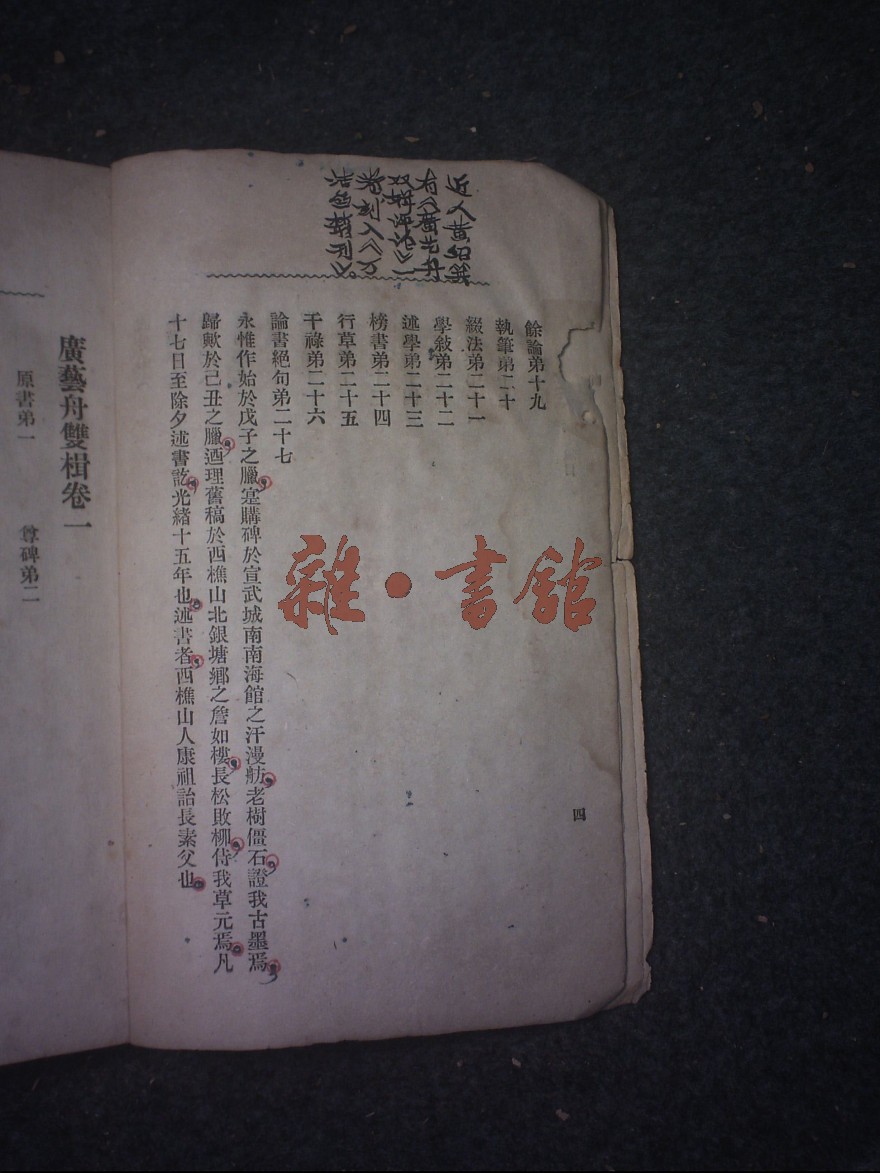 近人黄绍箕
有《广艺舟
双楫评论》一
卷刻入《万
洁斋丛刊》。
餘論弟十九
執筆弟二十
綴法弟二十一
學敍弟二十二
述學弟二十三
榜書弟二十四
行草弟二十五
干祿弟二十六
論書絕句弟二十七
永惟作始於戊子之臘寔購碑於宣武城南南海館之汗漫舫老樹僵石證我古墨焉
歸歟於己丑之臘迺理舊稿於西樵山北銀塘鄉之詹如樓長松敗柳侍我草元焉凡
十七日至除夕述書訖光緒十五年也述書者西樵山人康祖詒長素父也
四
廣藝舟雙楫卷一
原書弟一 尊碑弟二
雜·書館